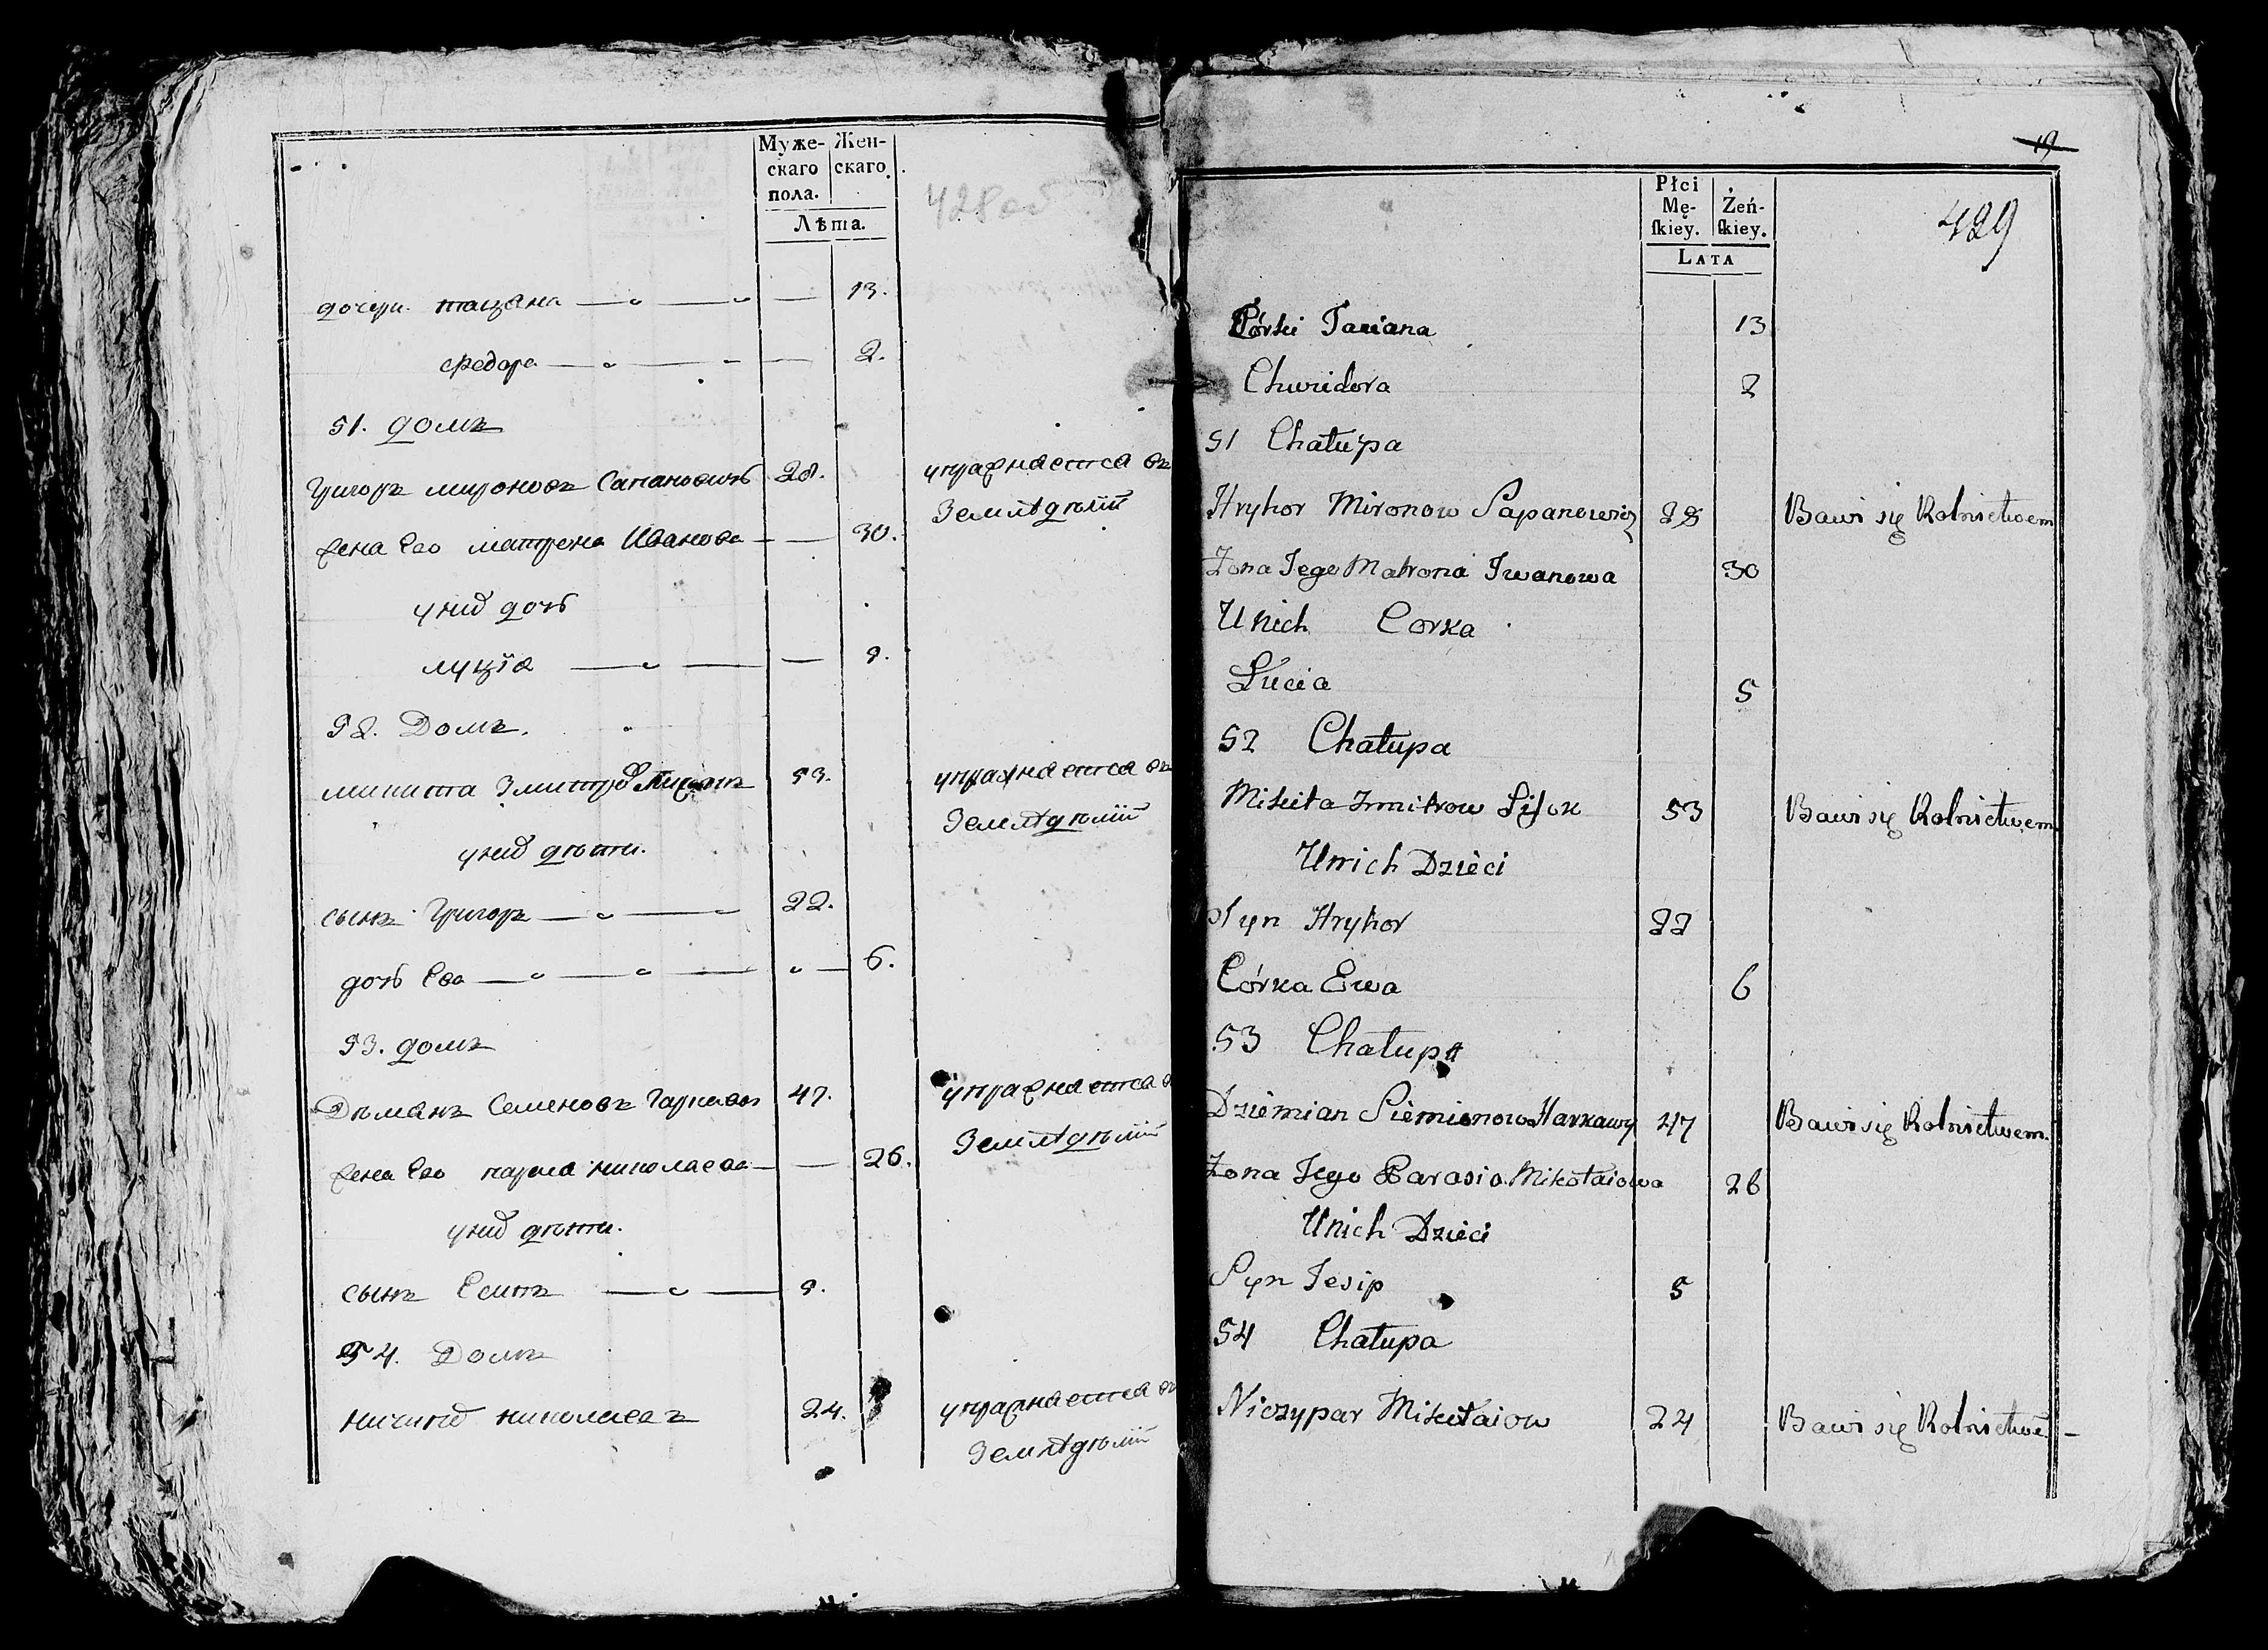 Муже-
скаго
пола.
Жен-
скаго.
Лѣта.
428об
дочери. тацяна 13.
федора 2.
51. домъ
Григоръ мироновъ Сапановичъ 28. упражняется въ
Земледѣлій
жена Его матрена Иванова 30.
у них дочь
луція 5.
52. Домъ.
микита Змитров 53. упражняется въ
Земледѣлій
у них дѣти.
сынъ Григоръ 22.
дочь Ева 6.
53. домъ
Дѣмянъ Семеновъ Гаркавы 47. упражняется в
Земледѣлій
жена Его николаева 26.
у них дѣти.
сынъ Есипъ 5.
54. Домъ
ничипор николаевъ 24. упражняется въ
Земледѣлій
19
Płci
Mę-
ſkiey.
Żeń-
ſkiey.
LATA
429
Córki Taciana 13
Chwiedora 2
51 Chałupa
Hryhor Mironow Sapanowicz 28 Bawi się Rolnictwem
Zona Jego Matrona Iwanowa 30
U nich Corka
Łucia 5
52 Chałupa
Mikita Zmitrow 53 Bawi się Rolnictwem
U nich Dzieci
Syn Hryhor 22
Córka Ewa 6
53 Chałupa
Dziemian Siemionow Harkawy 47 Bawi się Rolnictwem.
Zona Jego Parasia Mikołaiowa 26
U nich Dzieci
Syn Jesip 5
54 Chałupa
Niczypar Mikołaiow 24 Bawi się Rolnictwē